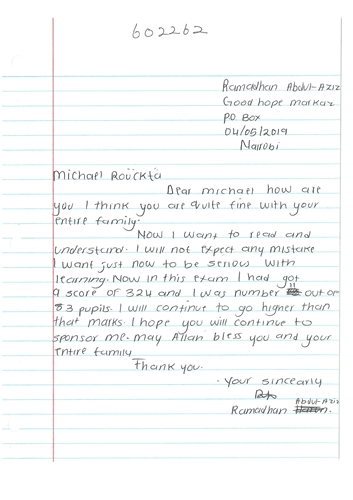 602262
Ramadhan Abdul-Aziz
Good hope markaz
P.O. Box
04/05/2019
Nairobi
Michael Rouckta
Dear michael how are
you I think you are quite fine with your
entire family.
Now I want to read and
understand. I will not expect any mistake
I want just now to be serious with
learning. Now in this exam I had got
a score of 324 and I was number 11 out of
53 pupils. I will continue to go higher than
that marks. I hope you will continue to
sponsor me. may Allah bless you and your
entire family
Thank you.
. Your sincerly
Abdul-Aziz
Ramadhan